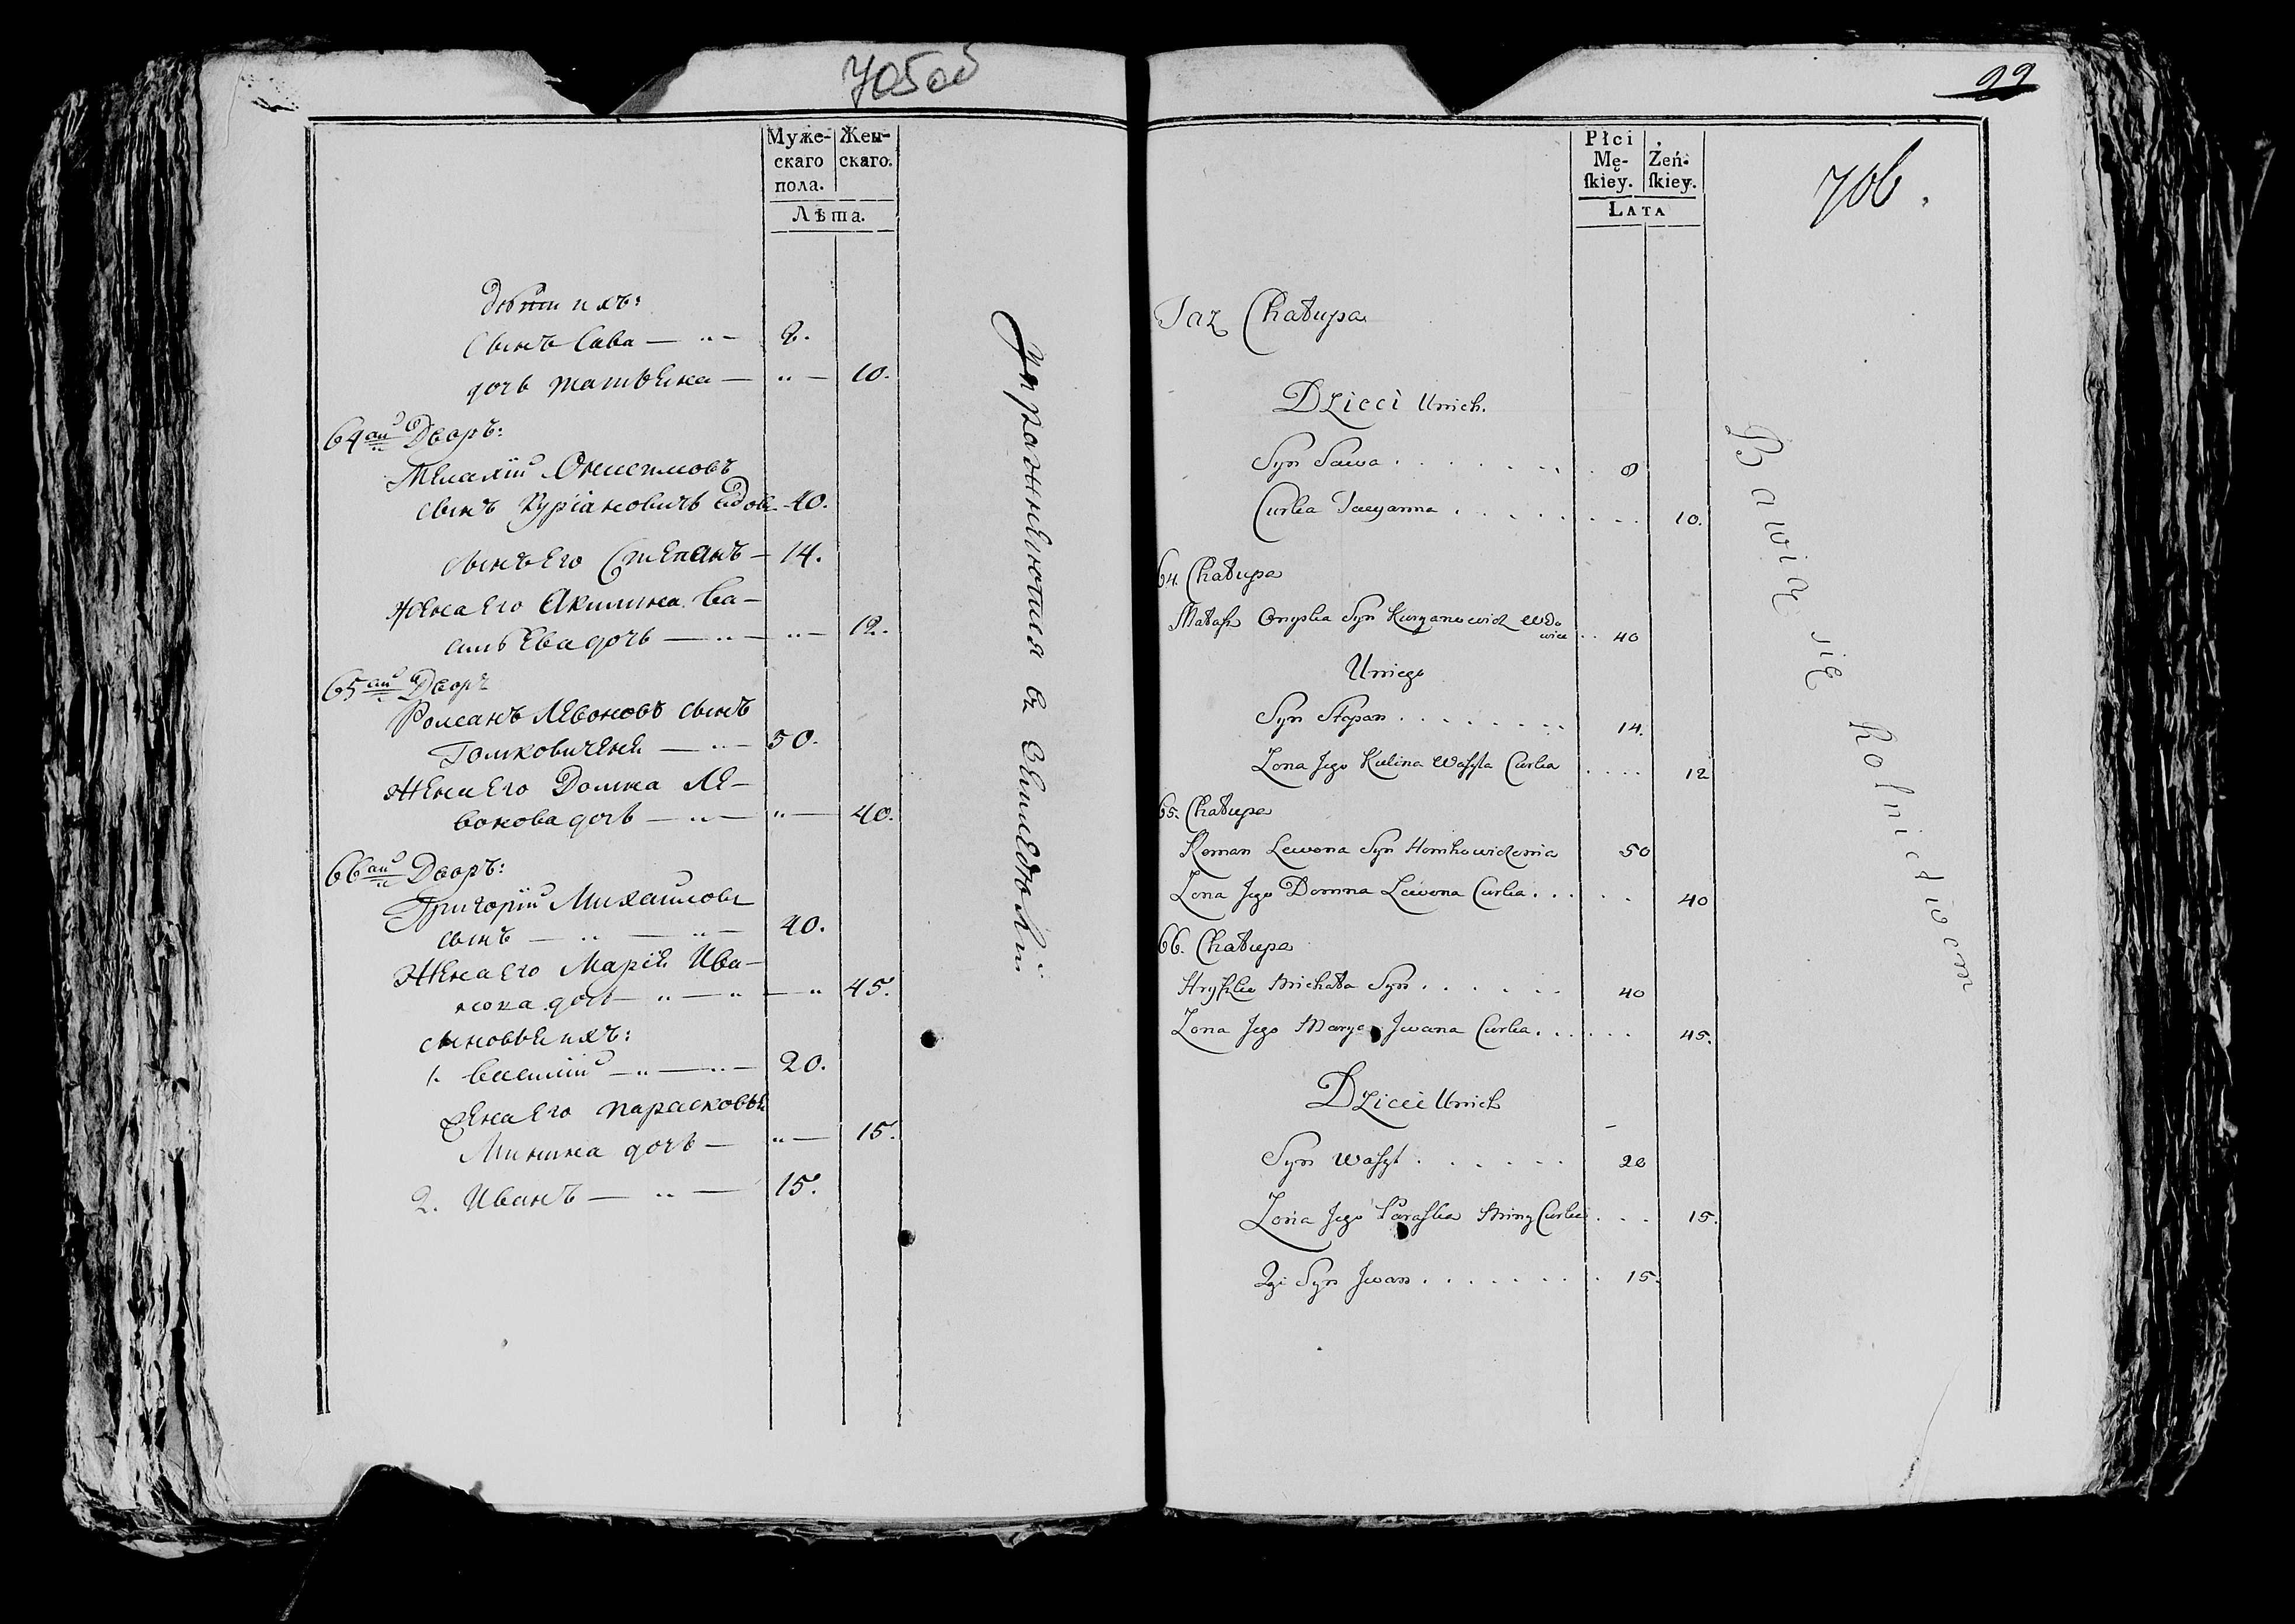 705об
Муже-
скаго
пола.
Жен-
скаго.
Лѣта.
дѣти ихъ:
сынъ Сава — „ — 8.
дочь татьяна — „ — 10.
64ый Дворъ:
Малахій Онисимовъ
сынъ Куріановичъ вдов. 40.
сынъ Его Степанъ — 14.
жена Его Акилина Ва-
сильЕва дочь — „ — „ — 12.
65ый Дворъ
Романъ Левоновъ сынъ
Гомковиченя — „ — 50.
Жена Его Домна Ле-
вонова дочь — „ — „ — 40.
66ый Дворъ:
Григорій Михаиловъ
сынъ — „ — „ — 40.
Жена Его Марія Ива-
нова дочь — „ — „ — „ 45.
сыновья ихъ:
1. Василій — „ — „ — 20.
жена Его парасковья
Минина дочь — „ — 15.
2. Иванъ — „ — 15.
Упражняются въ Земледѣліи
99
706.
Płci
Mę-
ſkiey.
Żeń-
ſkiey.
LATA
Taz Chałupa
Dzieci Unich.
Syn Sawa . . . . . . . 8
Curka Tacyanna . . . . . . . 10.
64. Chałupa
Małaſz Onyska Syn Kuryanowicz Wdo
wiec . . 40
Uniego
Syn Stepan . . . . . . . 14.
Zona Jego Kulina Waſyla Curka . . . . 12
65. Chałupa
Roman Lewona Syn Homkowiczenia 50
Zona Jego Domna Lewona Curka . . . . . 40
66. Chałupa
Hryſzko Michała Syn . . . . . . 40
Zona Jego Marya Jwana Curka . . . . . . 45.
Dzieci Unich
Syn Waſyl . . . . . . 20
Zona Jego Paraſka Miny Curka . . . 15.
2gi Syn Jwan . . . . . . . 15.
Bawią się Rolnictwem